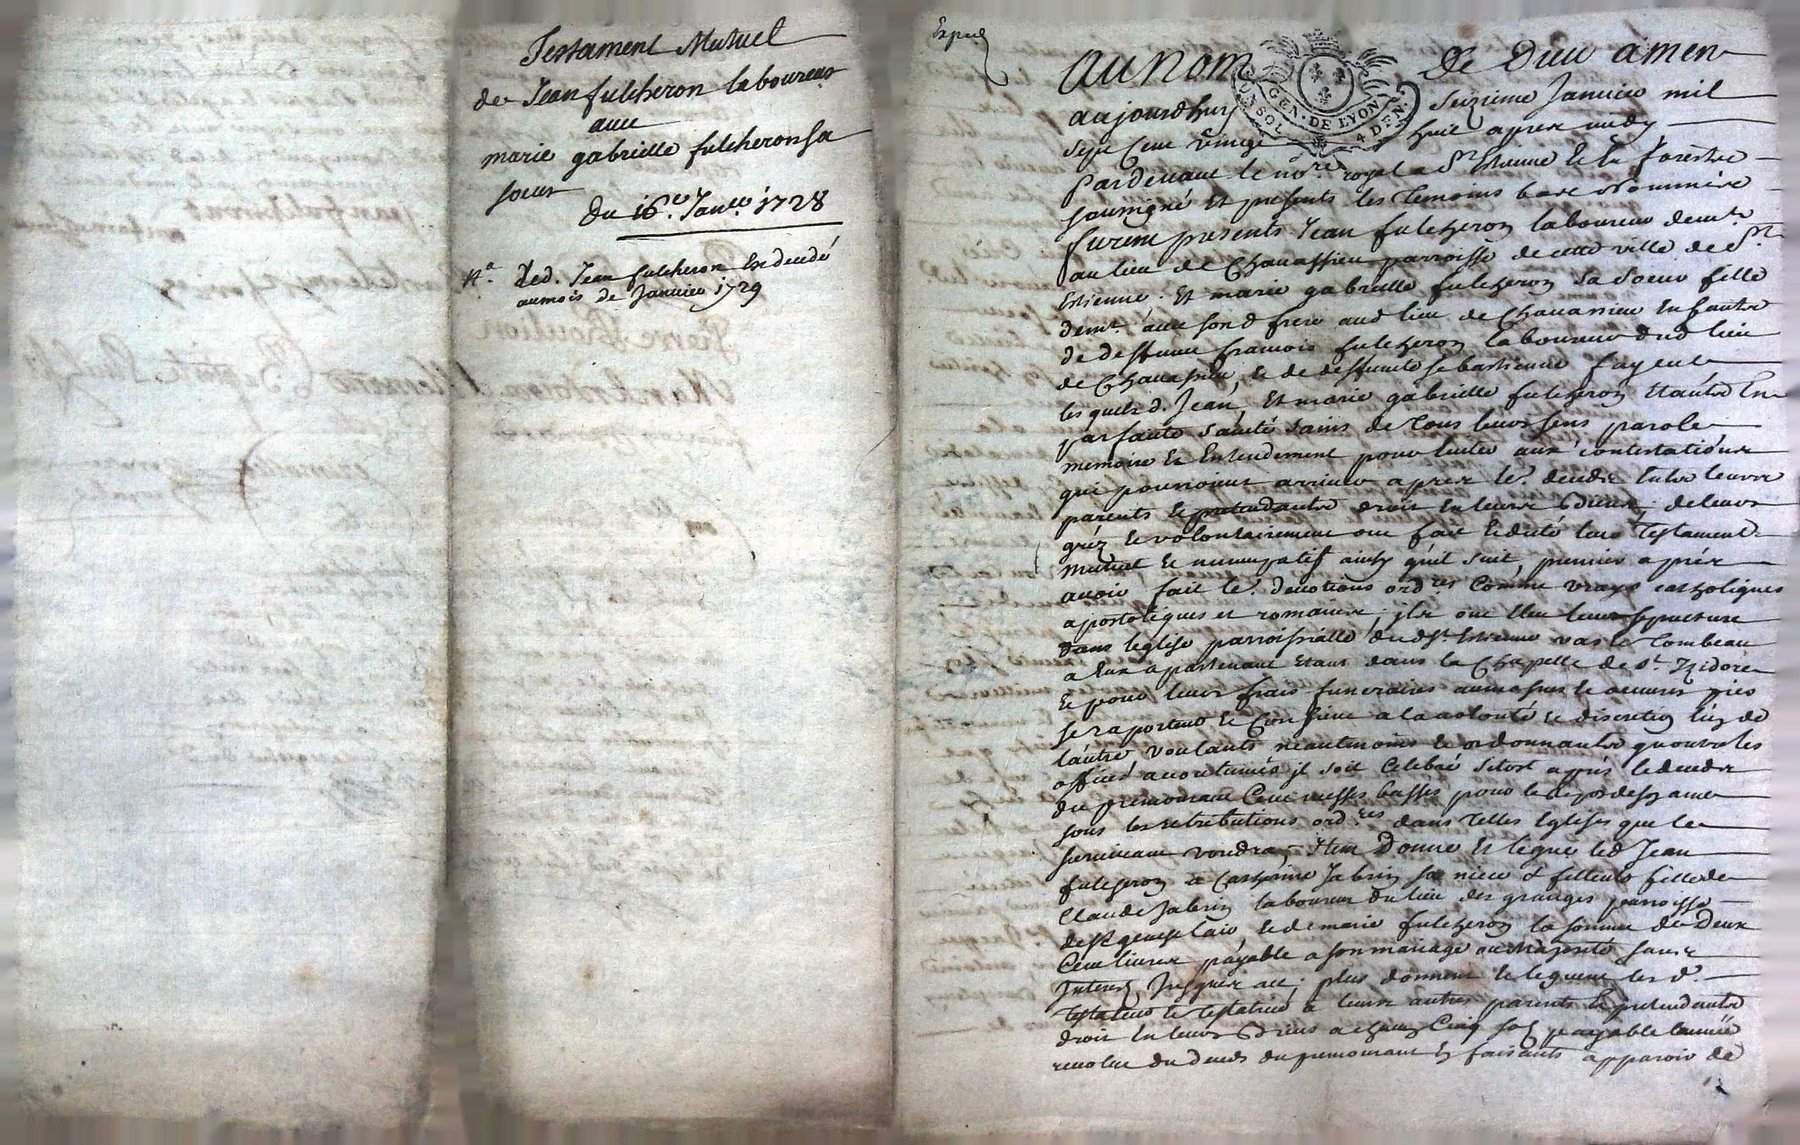 Testament Mutuel
de Jean fulcheron laboureur
avec
marie gabrielle fulcheron sa
soeur
du 16e. Janer. 1728
Na. Led. Jean fulcheron Est decedé
au mois de Janvier 1729
Exped
Au Nom de Dieu amen
aujourdhuy seizieme Janvier mil
GEN. DE LYON
UN SOL 4 DEN.
sept cent vingt huit apres midy
Pardevant le nore. royal a St Estienne Et En forest
soussigné Et presents les temoins bas Nommés
furent presents Jean fulcheron laboureur demt.
au lieu de Chavassieu parroisse de cette ville de St.
Estienne. Et marie gabrielle fulcheron sa soeur fille
demt. avec son d frere aud lieu de Chavassieu Enfants
de deffunt francois fulcheron laboureur dud lieu
de Chavassieu, Et de deffunte sebastienne fayent
les quels d. Jean, Et marie gabrielle fulcheron Etants En
parfaite santé sains de tous leurs sens parole
memoire Et Entendement pour Eviter aux contestations
qui pourroient arriver apres le. deceds Entre leurs
parents Et pretendants droit En leurs Biens, de leurs
gréz Et volontairement ont fait Et dicté leur Testament
Mutuel Et nuncupatif ainsy qu'il suit, premier apres
avoir fait le. devotions ordres Comme vrays catholiques
apostoliques et romains, ils ont Eleu leur sepulture
dans leglise parroissialle dud St. Estienne vas Et Tombeau
a Eux apartenant Etant dans la Chapelle de St. Izidore
Et pour leurs frais funeraires aumosnes Et oeuvres pies
se raportent Et Confient a la volonté Et discretion l'un de
l'autre, voulants neantmoins Et ordonnants qu'outre les
offices accoutumés il soit Celebré sitost apprés le deceds
du premourant Cent messes basses pour le repos de son ame
sous les retributions ordres dans telles Eglises que le
survivant voudra, Item Donne Et legue led Jean
fulcheron a Catherine Jabrin sa niece & filleule fille de
Claude Jabrin laboureur du lieu des granges parroisse
de St genest lair Et de marie fulcheron la somme de Deux
Cent livres payable a son mariage ou Majorité sans
Interest Jusques alle, plus donnent Et leguent les d.
Testateur Et Testatrice a leurs autres parents Et pretendants
droit En leurs Biens a chacun Cinq sols payable l'année
revolue du deceds du premourant En faisants apparoir de